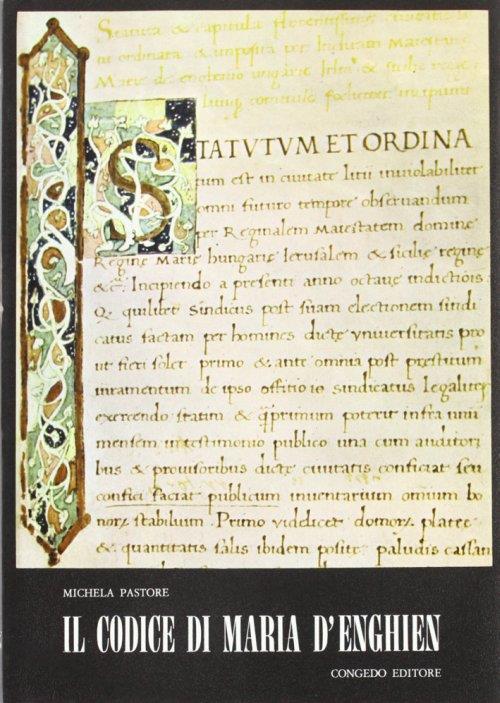 Statuta & capitula florentissime
ordinata & imposita per
Marie de enghenio ungarie &
feliciter incipiunt
STATVTVM ET ORDINA
tum est in ciuitate litii inuiolabiliter
omni futuro tempore obseruandum
per Reginalem Maiestatem domine
Regine Marie hungarie Ierusalem & sicilie regine
&c. Incipiendo a presenti anno octaue indictiõis
Q quilibet Sindicus post suam electionem sindi
catus factam per homines dicte vniuersitatis pro
ut fieri solet primo & ante omnia post prestitum
iuramentum de ipso offitio sindicatus legaliter
exercendo statim & poterit infra unũ
mensem in testimonio publico una cum auditori
bus & prouisoribus dicte ciuitatis conficiat seu
confici faciat publicum inuentarium omnium bo
noꝝ stabilium. Primo videlicet domoꝝ platee
& quantitatis salis ibidem posite paludis cassan
MICHELA PASTORE
IL CODICE DI MARIA D'ENGHIEN
CONGEDO EDITORE